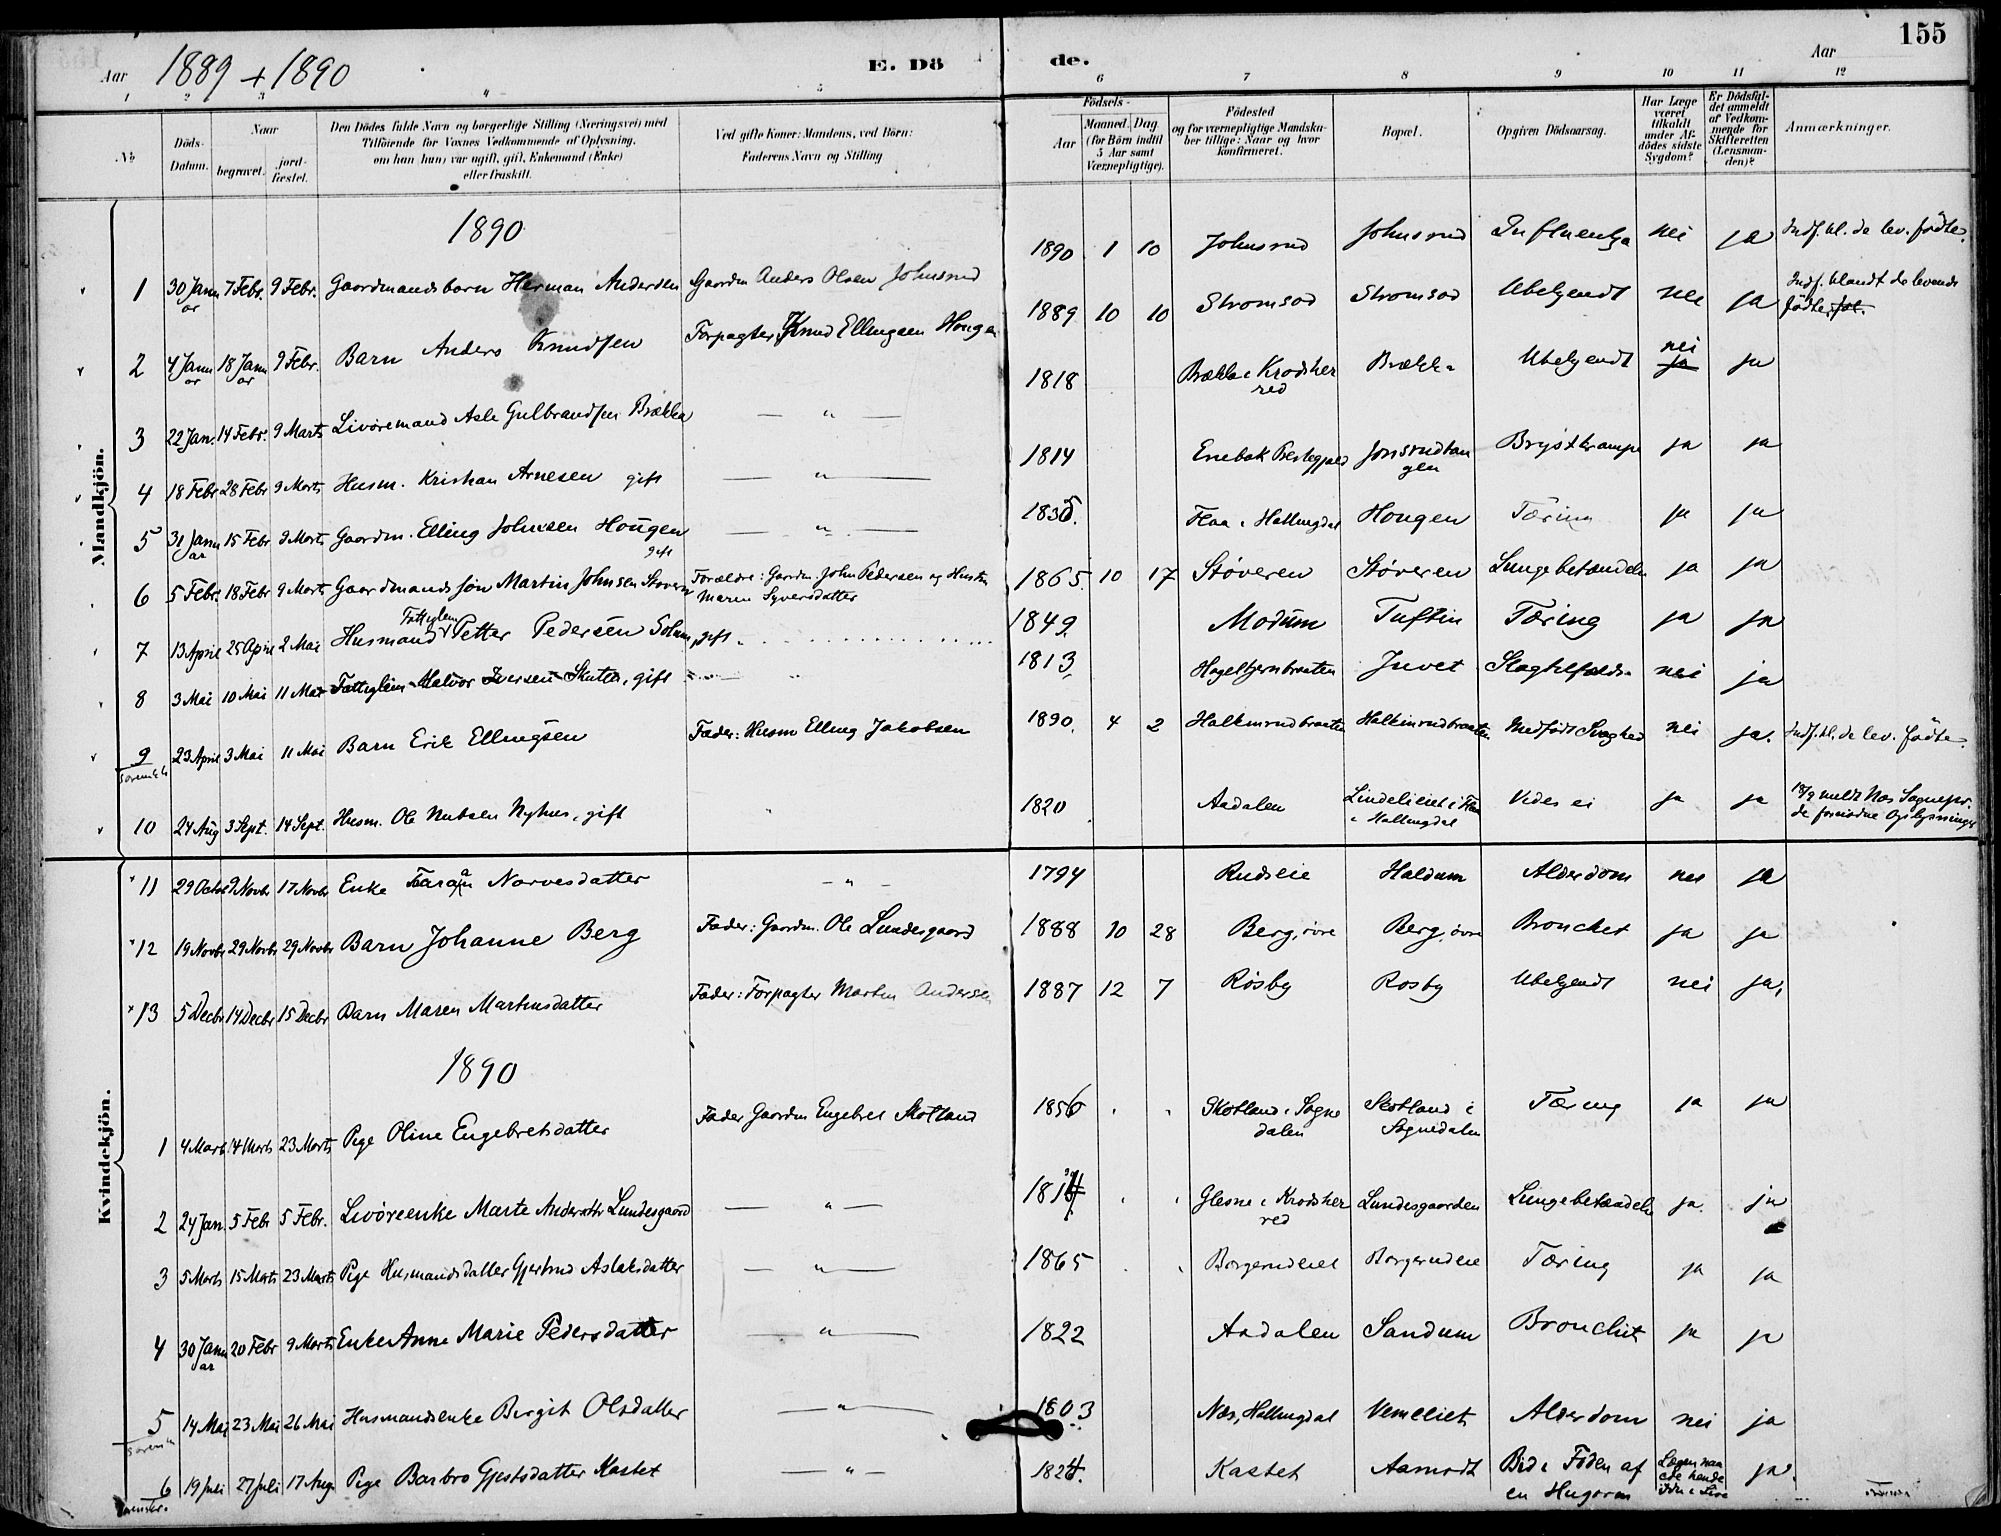 155
Aar 1889 + 1890
E. Dö de.
Aar
1 2 3 4 5 6 7 8 9 10 11 12
No
Döds-Datum.
Naar
begravet.
jordfæstet.
Den Dödes fulde Navn og borgerlige Stilling (Næringsvei) med
Tilföiende for Voxnes Vedkommende af Oplysning,
om han (hun) var ugift, gift, Enkemand (Enke)
eller fraskilt.
Ved gifte Koner: Mandens, ved Börn:
Faderens Navn og Stilling
Födsels-
Aar
Maaned. Dag
(for Börn indtil
5 Aar samt
Værnepligtige).
Födested
og for værnepligtige Mandskaber tillige: Naar og hvor
konfirmeret.
Bopæl.
Opgiven Dödsaarsag.
Har Læge været tilkaldt under Afdödes sidste Sygdom?
Er Dödsfaldet anmeldt af Vedkommende for Skifteretten (Lensmanden)?
Anmærkninger.
Mandkjön.
1890
1 30 Januar 7 Febr. 9 Febr. Gaardmandsbarn Herman Andersen Gaardm Anders Olsen Johnsrud 1890 1 10 Johnsrud Johnsrud Influentza nei ja Indf. bl. de lev. födte.
2 4 Januar 18 Januar 9 Febr. Barn Anders Knudsen Forpagter Knud Ellingsen Hougen 1889 10 10 Stromsod Stromsod Ubekjendt nei ja Indf. blandt de levende födte
3 22 Jan. 14 Febr. 9 Marts Livöremand Asle Gulbrandsen Brækka — " — 1818 Brækka i Krodsherred Brækka Ubekjendt nei ja ja
4 18 Febr 28 Febr 9 Marts Husm. Kristian Arnesen gift — " — 1814 Enebak Prestegjæld Jonsrudtangen Brystkrampe ja ja
5 31 Januar 15 Febr 9 Marts Gaardm. Elling Johnsen Hougen gift — " — 1835. Flaa i Hallingdal Hougen Tæring ja ja
6 5 Febr. 18 Febr 9 Marts Gaardmandssön Martin Johnsen Støveren Forældre: Gaardm John Pedersen og Hustru Maren Syversdatter 1865. 10 17 Støveren Støveren Lungebetændelse ja ja
7 13 April 25 April 2 Mai Husmand Fattiglem Petter Pedersen Solum, gift. 1849. Modum Tuftin Tæring ja ja
8 3 Mai 10 Mai 11 Mai Fattiglem Halvor Iversen Skutte, gift 1813. Hagelhjernbraaten Juvet Slagtilfælde nei ja
9 23 April 3 Mai 11 Mai Barn Erik Ellingsen Fader: Husm Elling Jakobsen 1890. 4 2 Halkinrudbraaten Halkinrudbraaten Medfödt Svaghed nei ja. Indf. bl. de lev. födte.
10 24 Aug 3 Sept. 14 Sept. Husm. Ole Nubsen Nyhus, gift " 1820 Aadalen Lindelieiet i Flaa i Hallingdal Vides ei ja ja 18/9 meldt Nes Sognepr. de fornödne Oplysninger
Kvindekjön.
11 29 Octbr 9 Novbr 17 Novbr Enke Faran Narvesdatter — " — 1794 Rudseie Haldum Alderdom nei ja
12 19 Novbr 29 Novbr 29 Novbr Barn Johanne Berg Fader: Gaardm. Ole Lundesgaard 1888 10 28 Berg, övre Berg, övre Bronchet ja ja
13 5 Decbr 14 Decbr 15 Decbr Barn Maren Martinsdatter Fader: Forpagter Martin Andersen 1887 12 7 Rösby Rosby Ubekjendt nei ja.
1890
1 4 Marts 14 Marts 23 Marts Pige Oline Engebretsdatter Fader Gaardm Engebret Skotland 1856 Skotland i Sognedalen Skotland i Sognedalen Tæring ja ja
2 24 Jan 5 Febr 5 Febr. Livöreenke Marte Andersdtr Lundesgaard — " — Glesne i Krodsherred Lundesgaarden Lungebetændelse ja. ja
3 5 Marts 15 Marts 23 Marts Pige Husmandsdatter Gjertrud Aslaksdatter — " — 1865 Borgerudeiet Borgerudeie Tæring ja ja
4 30 Januar 20 Febr 9 Marts Enke Anne Marie Pedersdatter — " — 1822 Aadalen Sandum Bronchit ja ja
5 14 Mai 23 Mai 26 Mai Husmandsenke Birgit Olsdatter — " — 1803 Nes, Hallingdal Vemeliet Alderdom nei ja
6 19 Juli 27 Juli 17 Aug. Pige Barbro Gjestsdatter Kastet — " — 1824. Kastet Aamodt Bid i Foden af en Hugorm Lægen naaede hende ikke i Live ja.